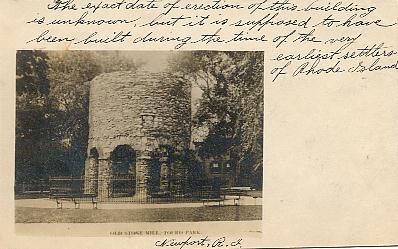 The exact date of erection of this building
is unknown, but it is supposed to have
been built during the time of the very
earliest settlers
of Rhode Island
OLD STONE MILL, TOURO PARK.
Newport, R.I.